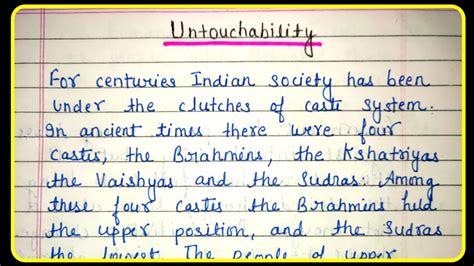 Untouchability
For centuries Indian society has been
under the clutches of caste system.
In ancient times there were four
castes, the Brahmins, the Kshatriyas
the Vaishyas and the Sudras. Among
these four castes the Brahmins held
the upper position, and the Sudras
the lowest. The people of upper